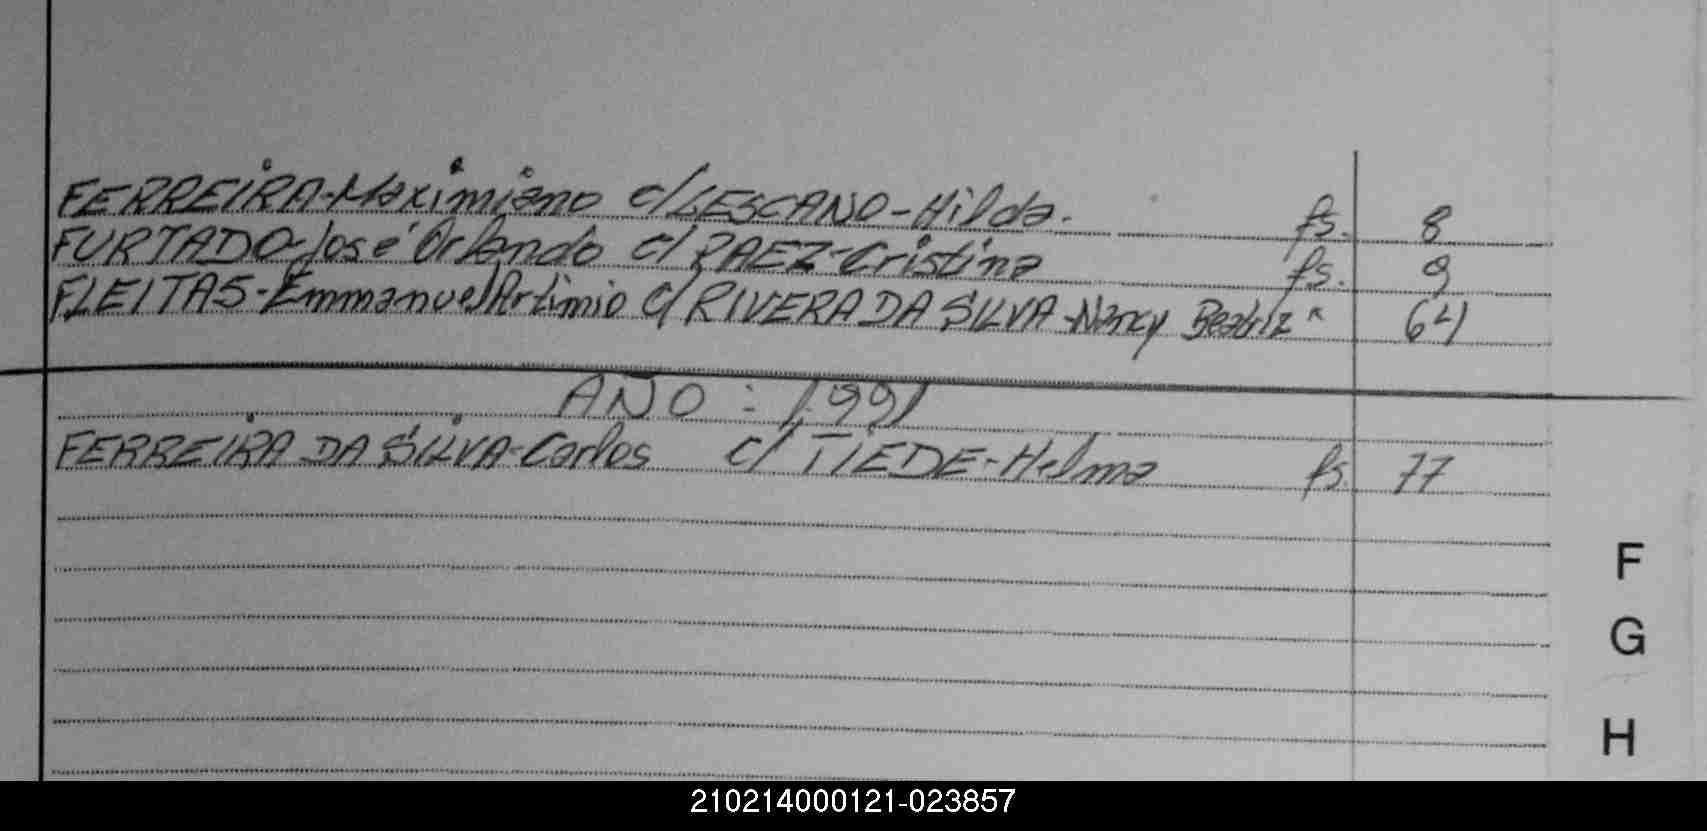 FERREIRA-Maximiano c/LESCANO-Hilda. fs. 8
FURTADO-José Orlando c/ PAEZ-Cristina fs. 9
FLEITAS-Emmanuel Artimio c/ RIVERA DA SILVA-Nancy Beatriz " 64
AÑO : 1991
FERREIRA DA SILVA-Carlos c/ TIEDE-Helma fs. 77
F
G
H
210214000121-023857